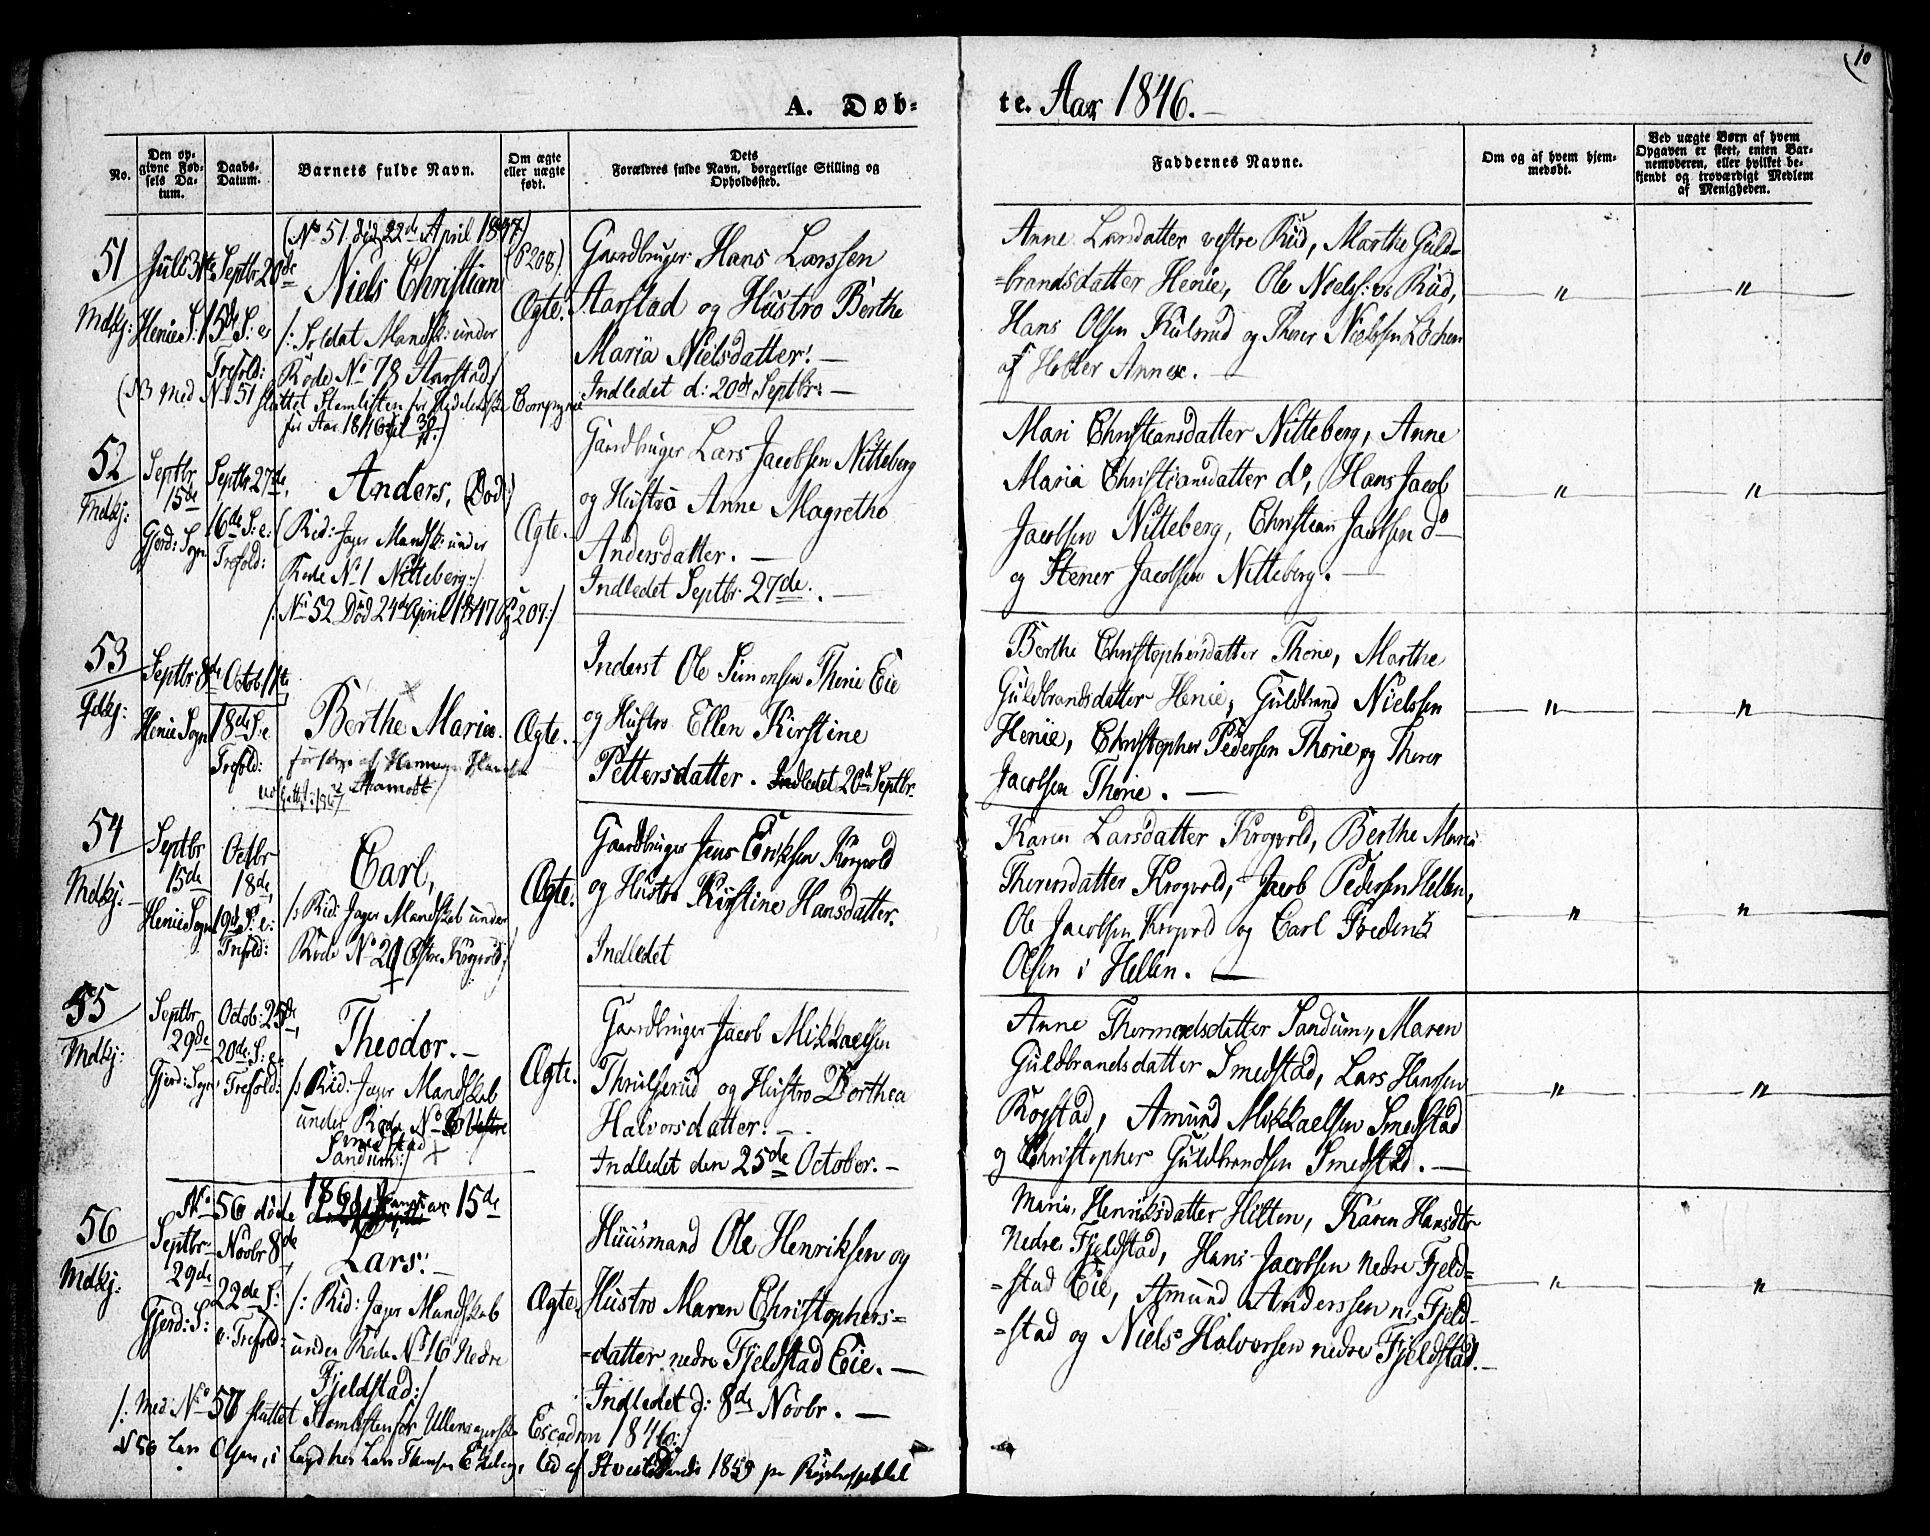 10
A. Døb-
te. Aar 1846.
No.
Den op-
givne Fød-
sels Da-
tum.
Daabs-
Datum.
Barnets fulde Navn.
Om ægte
eller uægte
født.
Dets
Forældres fulde Navn, borgerlige Stilling og
Opholdssted.
Faddernes Navne.
Om og af hvem hjem-
medøbt.
Ved uægte Børn af hvem
Opgaven er skeet, enten Bar-
nemoderen, eller hvilket be-
kjendt og troværdigt Medlem
af Menigheden.
51
Mdkj:
Juli 31te
Henie S:
Septbr 20de
15de S: e:
Trefold:
(No 51 død 22de April 1847)
(P 208)
Niels Christian
/: Soldat Mandsk: under
Rode No 78 Aarstad/
(53 Med No 51 sluttet Stamlisten for Compagnie
for Aar 1846
Ægte.
Gaardbruger Hans Larssen
Aarstad og Hustro Berthe
Maria Nielsdatter! —
Indledet d: 20de Septbr: —
Anne Larsdatter vestre Rud, Marthe Guld-
=brandsdatter Henie, Ole Niels: v: Rud,
Hans Olsen Kulsrud og Thorer Nielssen Lochen
af Hobler Annex. —
" "
52
Mdkj:
Septbr
15de
Gjerd: Sogn
Septbr 27de,
16de S: e:
Trefold:
Anders, (Død:)
(Rid: Jæger Mandsk: under
Rode No 1 Nitteberg:/
/: No 52 Død 24de April 1847 Pg 207:/
Ægte.
Gaardbruger Lars Jacobsen Nitteberg
og Hustro Anne Magrethe
Andersdatter. —
Indledet Septbr 27de. —
Mari Christiansdatter Nitteberg, Anne
Maria Christiansdatter do, Hans Jacob
Jacobsen Nitteberg, Christian Jacobsen do
og Stener Jacobsen Nitteberg. —
" "
53
Qvkj:
Septbr 8de
Henie Sogn
Octob: 11te,
18de S: e
Trefold:
Berthe Maria.
Ægte.
Inderst Ole Simonsen Thorie Eie
og Hustro Ellen Kirstine
Pettersdatter. Indledet 20de Septbr.
Berthe Christophersdatter Thorie, Marthe
Guldbrandsdatter Henie, Guldbrand Nielssen
Henie, Christopher Pedersen Thorie og Thorer
Jacobsen Thorie. —
" "
54
Mdkj:
Septbr
15de
Henie Sogn
Octbr
18de,
19de S: e:
Trefold:
Carl,
/: Rid: Jæger Mandskab under
Rode No 21 Østre Krogvold:/
Ægte.
Gaardbruger Jens Eriksen Krogvold
og Hustro Kirstine Hansdatter.
Indledet
Karen Larsdatter Krogvold, Berthe Maria
Thorersdatter Krogvold, Jacob Pedersen Hellen,
Ole Jacobsen Krogvold og Carl Frederik
Olsen i Hellen. —
" "
55
Mdkj:
Septbr
29de
Gjerd: Sogn
Octob: 25de,
20de S: e:
Trefold:
Theodor. —
/: Rid: Jæger Mandskab
under Rode No 6 Vestre
Smedstad
Sandum:/
Ægte.
Gaardbruger Jacob Mikkaelsen
Thrulserud og Hustro Dorthea
Halvorsdatter. —
Indledet den 25de October. —
Anne Thormodsdatter Sandum, Maren
Guldbrandsdatter Smedstad, Lars Hanssen
Rogstad, Amund Mikkaelsen Smedstad
og Christopher Guldbrandsen Smedstad. —
" "
No 56 døde 1861 Januar 15de
56
Mdkj:
Septbr
29de
Gjerd: S:
Novbr 8de,
22de S:
e. Trefold:
Lars: —
/: Rid: Jæger Mandskab
under Rode No 16 Nedre
Fjeldstad:/
Ægte.
Huusmand Ole Henriksen og
Hustro Maren Christophers=
=datter nedre Fjeldstad Eie. —
Indledet d: 8de Novbr. —
Maria Henriksdatter Hilten, Karen Hansdtr
Nedre Fjeldstad, Hans Jacobsen nedre Fjeld=
=stad Eie, Amund Anderssen n: Fjeld-
=stad og Niels Halvorsen nedre Fjeldstad. —
" "
/: Med No 57 sluttet Stamlisten for Ullensagerske Escadron 1846:/
No 56 Lars Olsen, i Lægd hos Lars Eckeberg, 1859